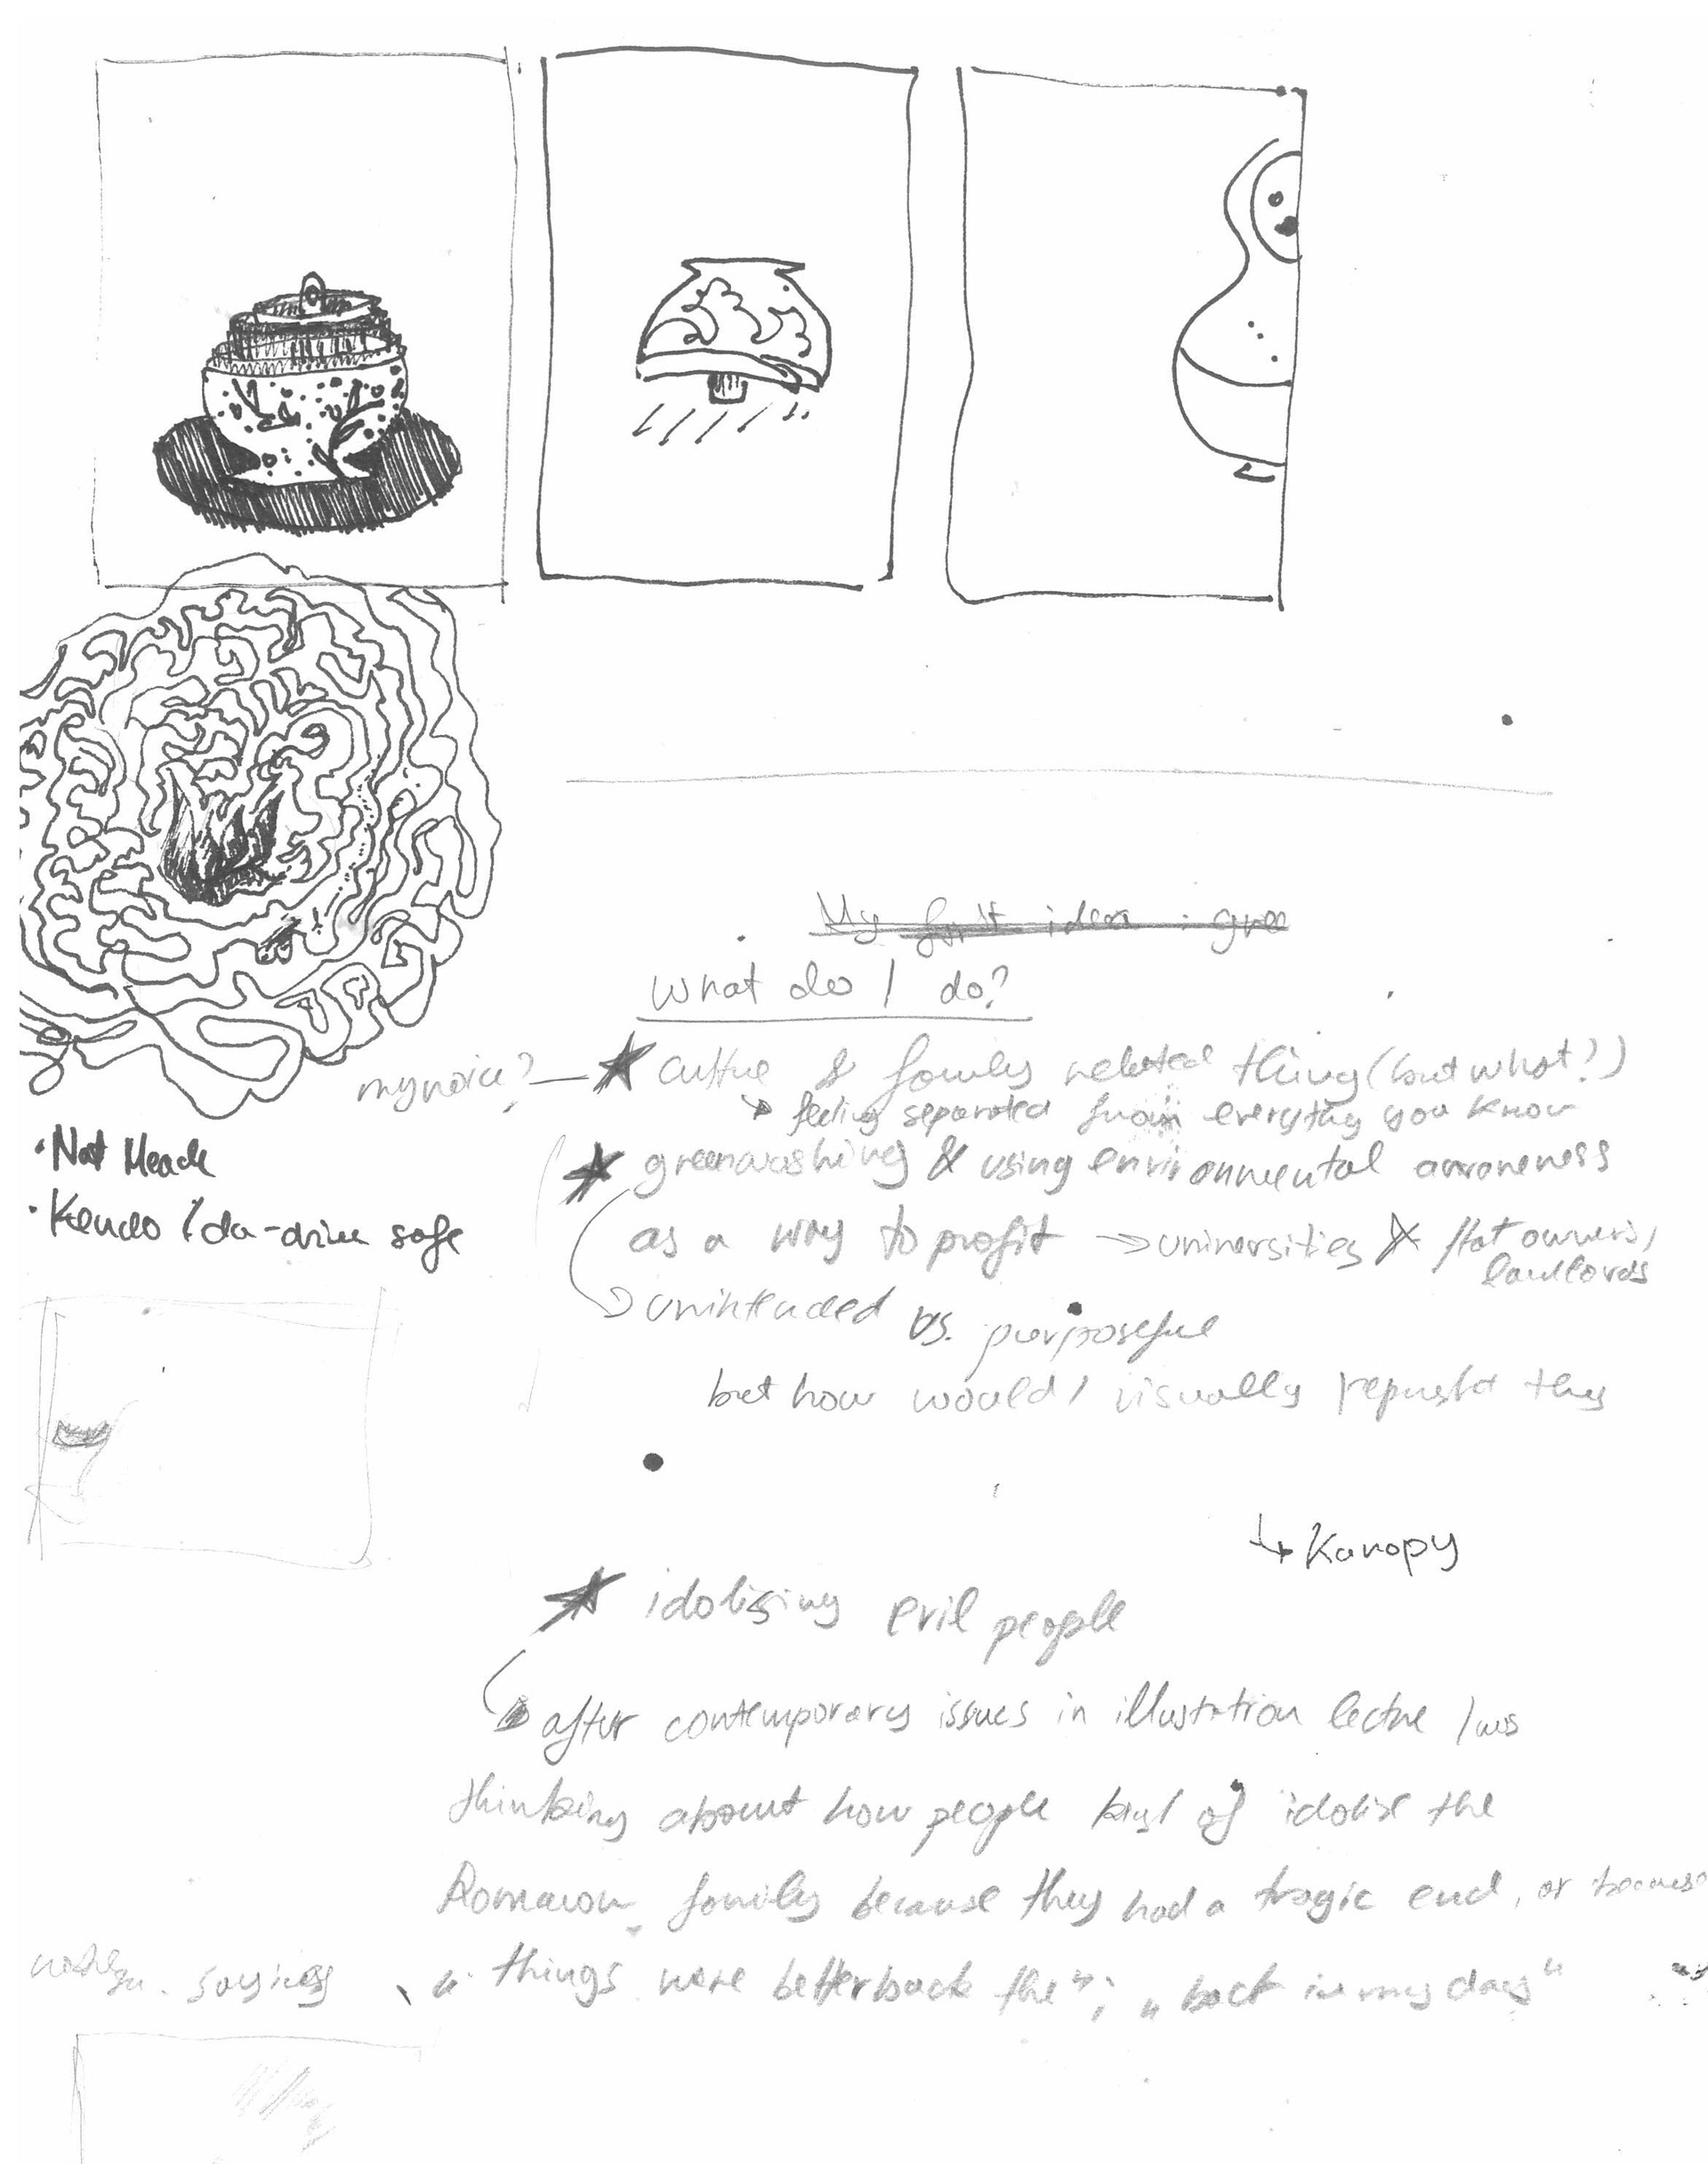 My first idea : gree
What do I do?
my voice? — ★ culture & family related thing (but what?)
↳ feeling separated from everything you know
★ greenwashing & using environmental awareness
as a way to profit → universities & flat owners,
landlords
→ unintended vs. purposeful
but how would I visually represent this
• Nat Meade
• Kendo
safe
↳ Kanopy
★ idolising evil people
↳ after contemporary issues in illustration lecture I was
thinking about how people kind of idolise the
Romanov family because they had a tragic end, or because
sayings "things were better back the"; „back in my days"